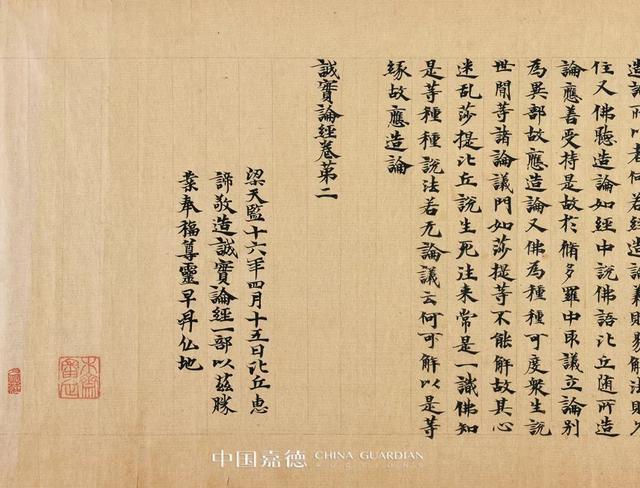 造論所以者何若經造論義則易解法則久
住又佛聽造論如經中說佛語比丘随所造
論應善受持是故於脩多羅中取議立論別
為異部故應造論又佛為種種可度衆生說
世閒等諸論議門如莎提等不能解故其心
迷乱莎提比丘說生死法来常是一識佛知
是等種種說法若无論議云何可解以是等
緣故應造論
誠實論經卷第二
梁天監十六年四月十五日比丘惠
諦敬造誠實論經一部以兹勝
業奉福尊靈早昇仏地
中国嘉德 CHINA GUARDIAN